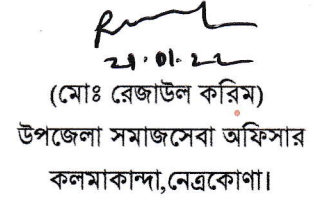 ২৭.০১.২২
(মোঃ রেজাউল করিম)
উপজেলা সমাজসেবা অফিসার
কলমাকান্দা,নেত্রকোণা।